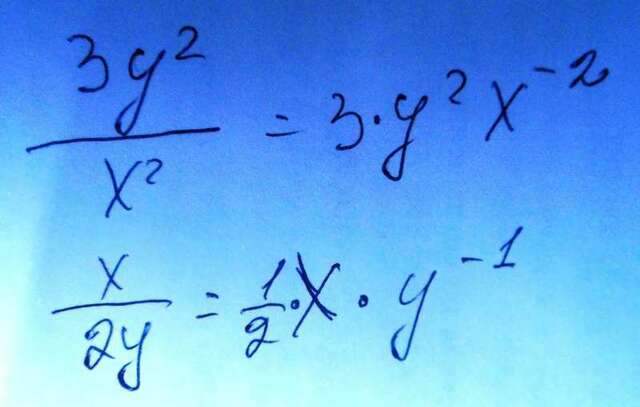 3y²/x² = 3·y²x⁻²
x/2y = 1/2·x·y⁻¹